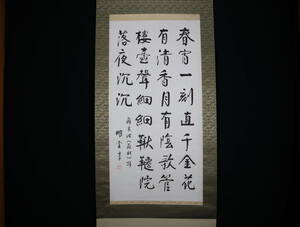 春宵一刻直千金花
有清香月有陰歌管
樓臺聲細細鞦韆院
落夜沉沉